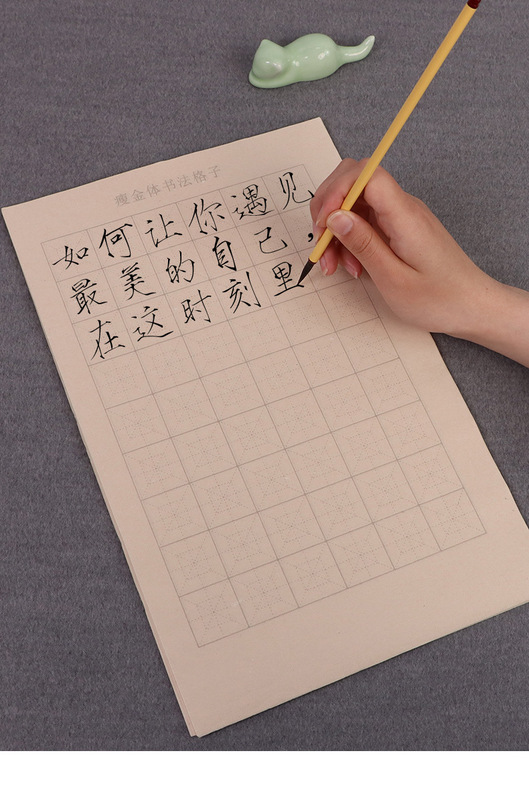 瘦金体书法格子
如何让你遇见
最美的自己，
在这时刻里